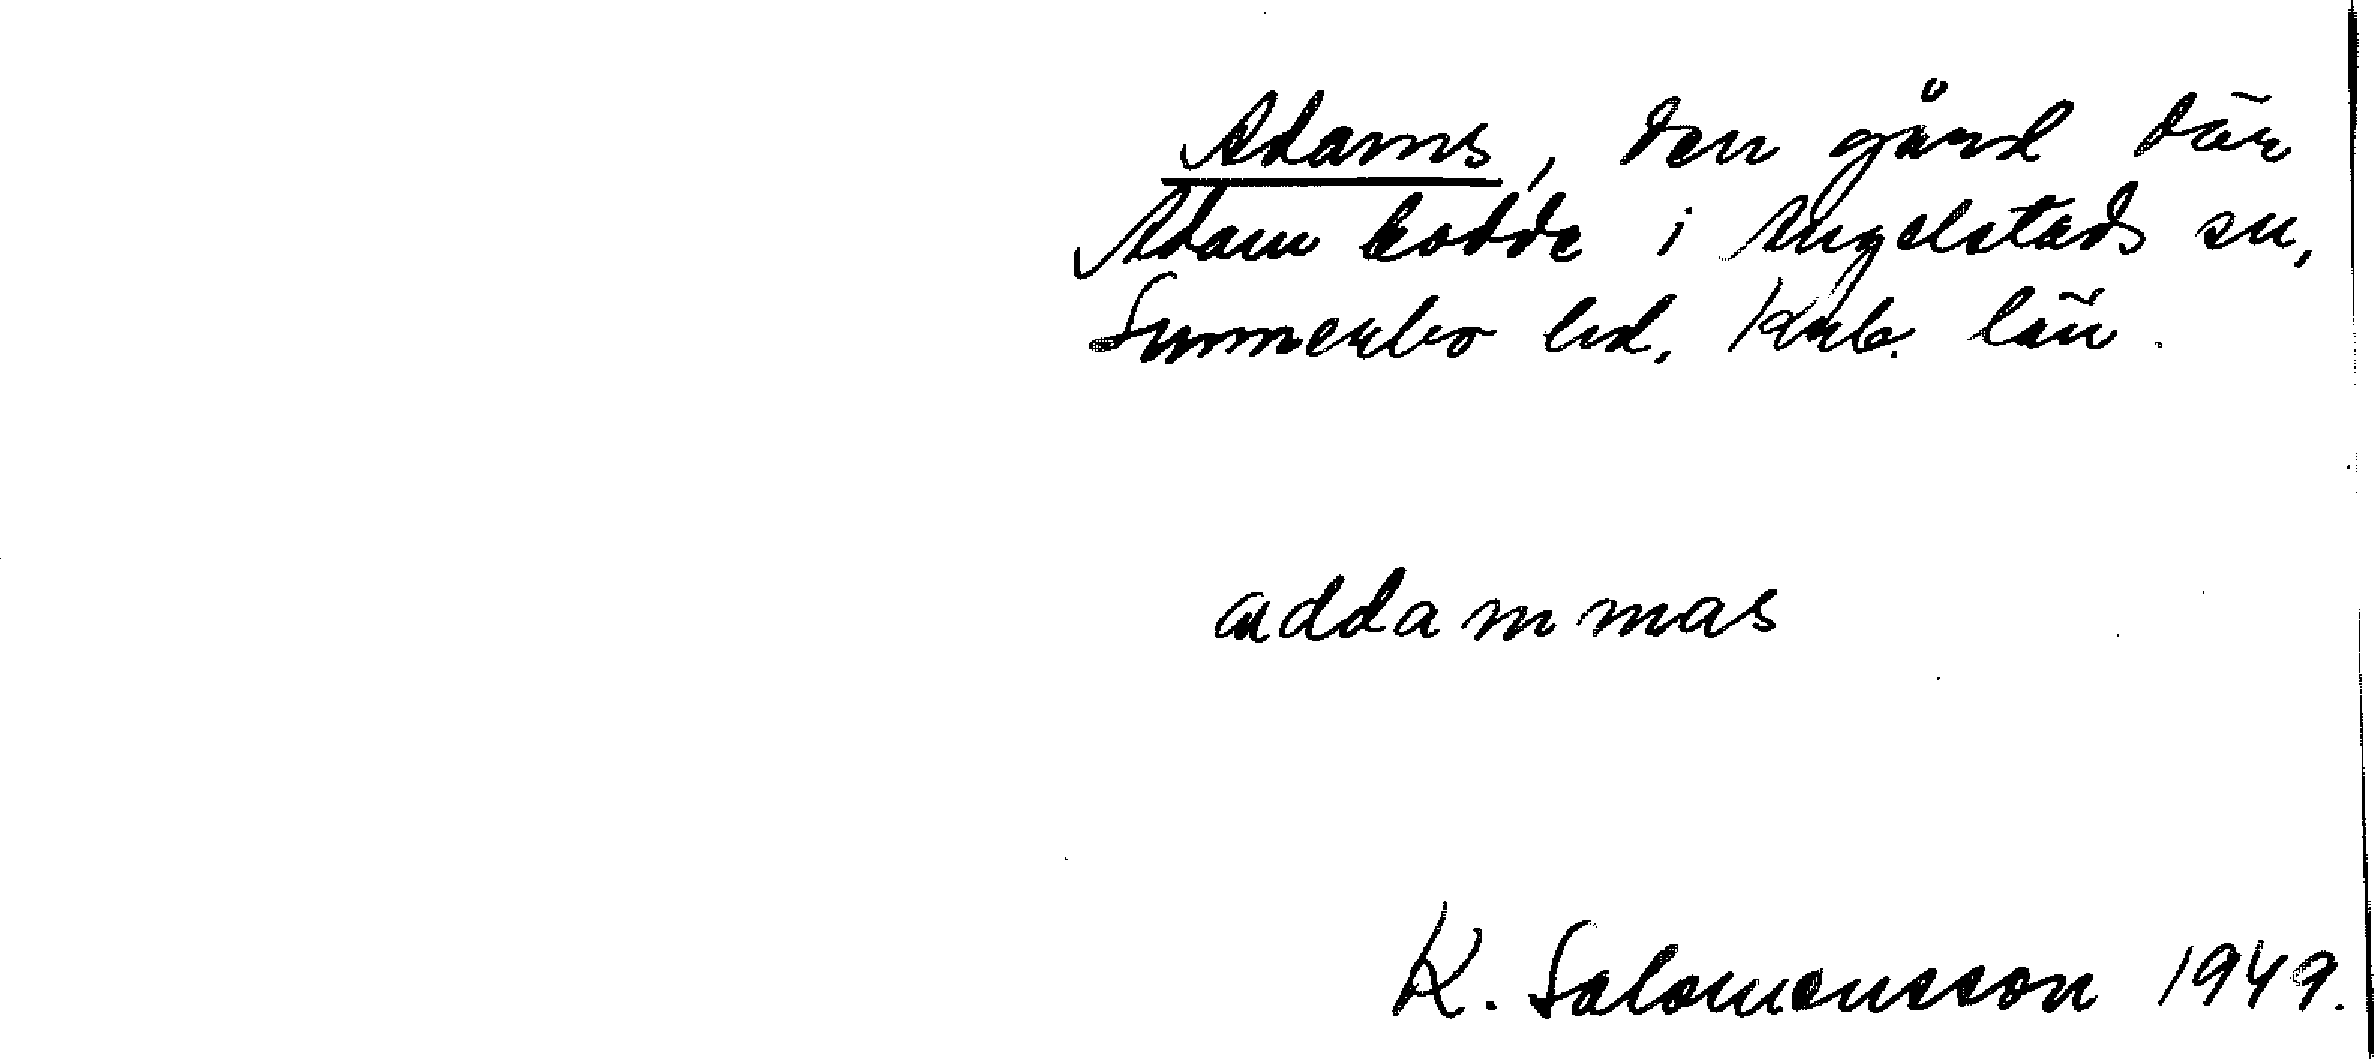 Adams, den gård där
Adam bodde i Angelstads sn,
Sunnerbo hd, Krb. län.
addammas
K. Salomonsson 1949.